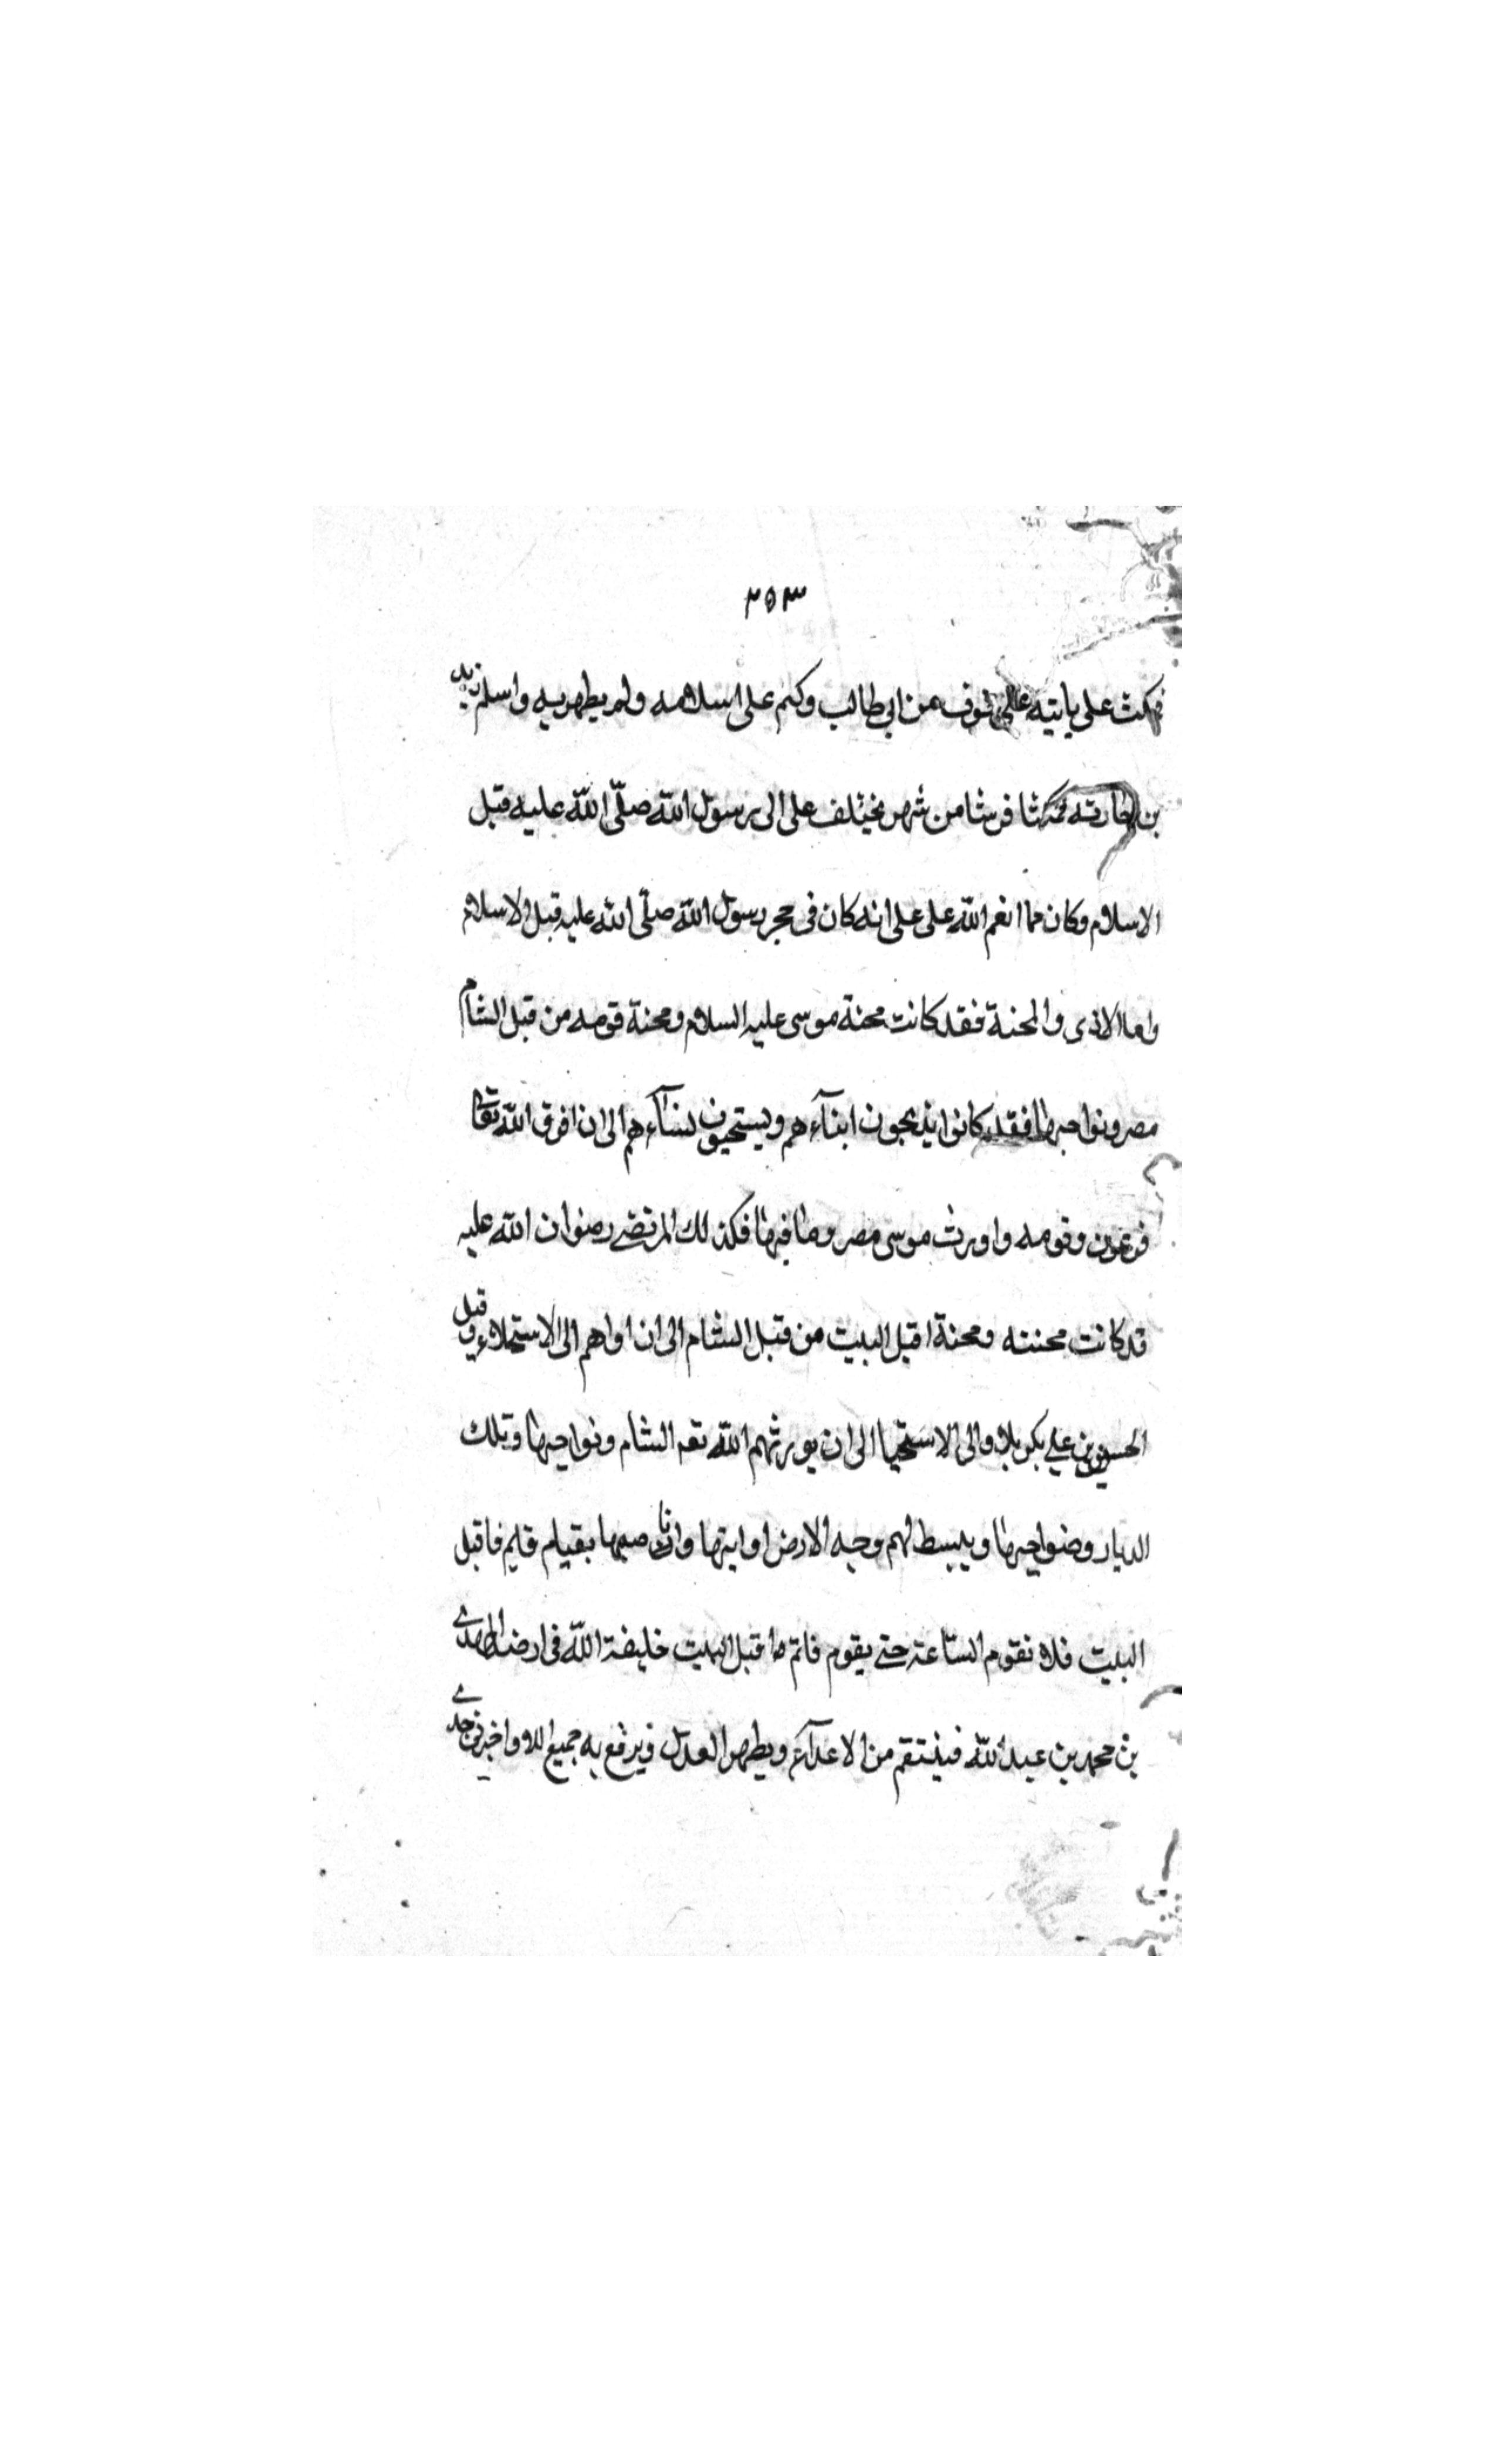 ٢٥٣
فمكث علي ياتيه على خوف من ابي طالب وكتم على اسلامه ولم يظهر به واسلم زيد
بن حارثه فمكثا قريبا من شهر يختلف على الى رسول الله صلّى اللّه عليه قبل
الاسلام وكان مما انعم الله على على انه كان فى حجر رسول الله صلّى الله عليه قبل الاسلام
واما الاذى والمحنة فقد كانت محنة موسى عليه السلام ومحنة قومه من قبل الشام
مصر ونواحيها فقد كانوا يذبحون ابنآءهم ويستحيون نسآءهم الى ان اغرق الله تعا
فرعون وقومه واورث موسى مصر وما فيها فكذلك المرتضى رضوان الله عليه
قد كانت محنته ومحنة اهل البيت من قبل الشام الى ان اواهم الى الاستملاء وقبل
الحسين بن علي بكربلا والى الاستحيا الى ان يورثهم الله تعه الشام ونواحيها وتلك
الديار وضواحيها ويبسط لهم وجه الارض اوايتها بقيام قايم فاقبل
البيت فلا تقوم السّاعة حتى يقوم قايم اهل البيت خليفة اللّه فى ارضه المهدي
بن محمد بن عبد اللّه فينتقم من الاعدآء ويظهر العدل ويرفع به جميع واخبرني جدي